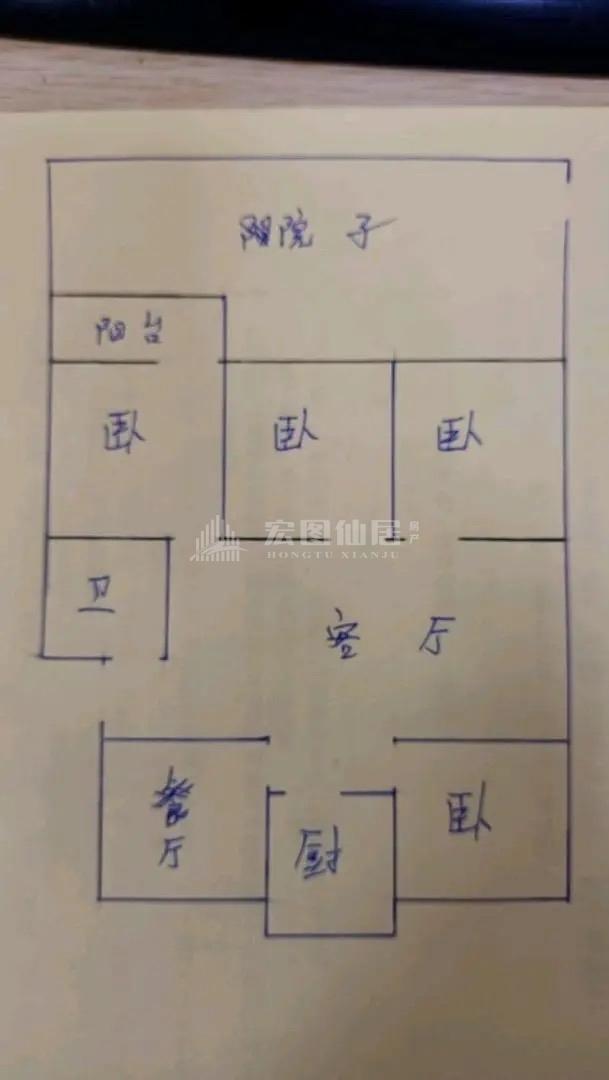 阳院子
阳台
卧 卧 卧
宏图仙居 房产
HONGTU XIANJU
卫
客厅
餐厅
厨
卧